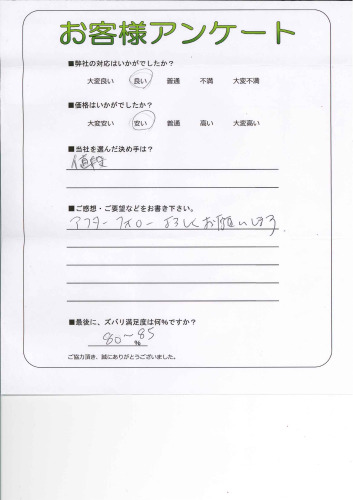 お客様アンケート
■弊社の対応はいかがでしたか？
大変良い 良い 普通 不満 大変不満
■価格はいかがでしたか？
大変安い 安い 普通 高い 大変高い
■当社を選んだ決め手は？
値段
■ご感想・ご要望などをお書き下さい。
アフターフォローよろしくお願いします
■最後に、ズバリ満足度は何％ですか？
80〜85
％
ご協力頂き、誠にありがとうございました。